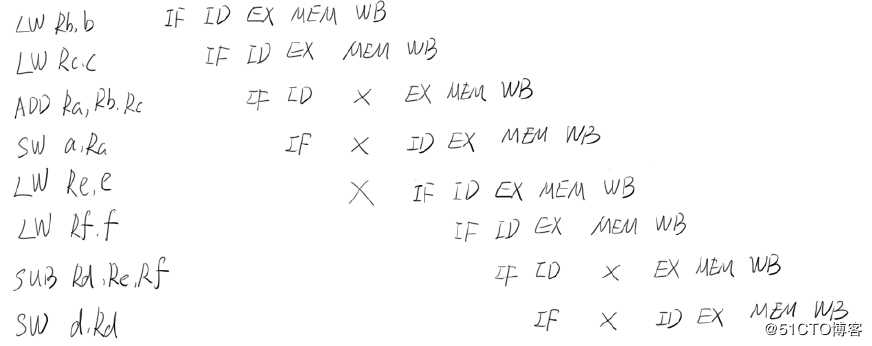 LW Rb,b IF ID EX MEM WB
LW Rc.c IF ID EX MEM WB
ADD Ra,Rb.Rc IF ID X EX MEM WB
SW a,Ra IF X ID EX MEM WB
LW Re,e X IF ID EX MEM WB
LW Rf.f IF ID EX MEM WB
SUB Rd,Re,Rf IF ID X EX MEM WB
SW d,Rd IF X ID EX MEM WB
@51CTO博客